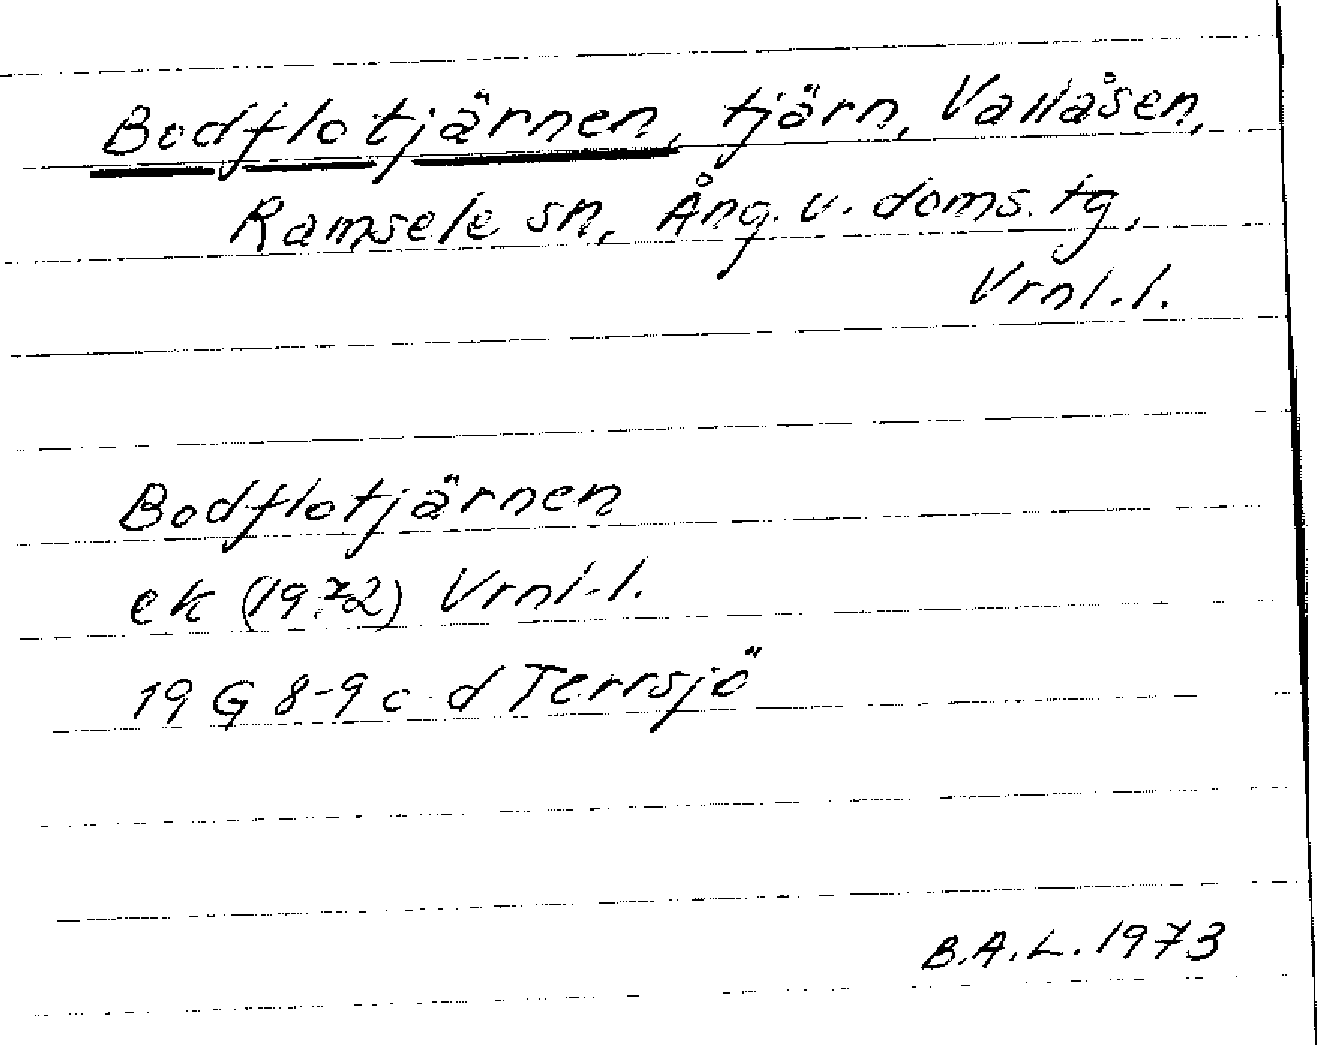 Bodflotjärnen, tjärn, Vallåsen,
Ramsele sn, Ång. v. doms. tg,
Vrnl.l.
Bodflotjärnen
ek (1972) Vrnl-l.
19 G 8-9 c d Terrsjö
B.A.L. 1973